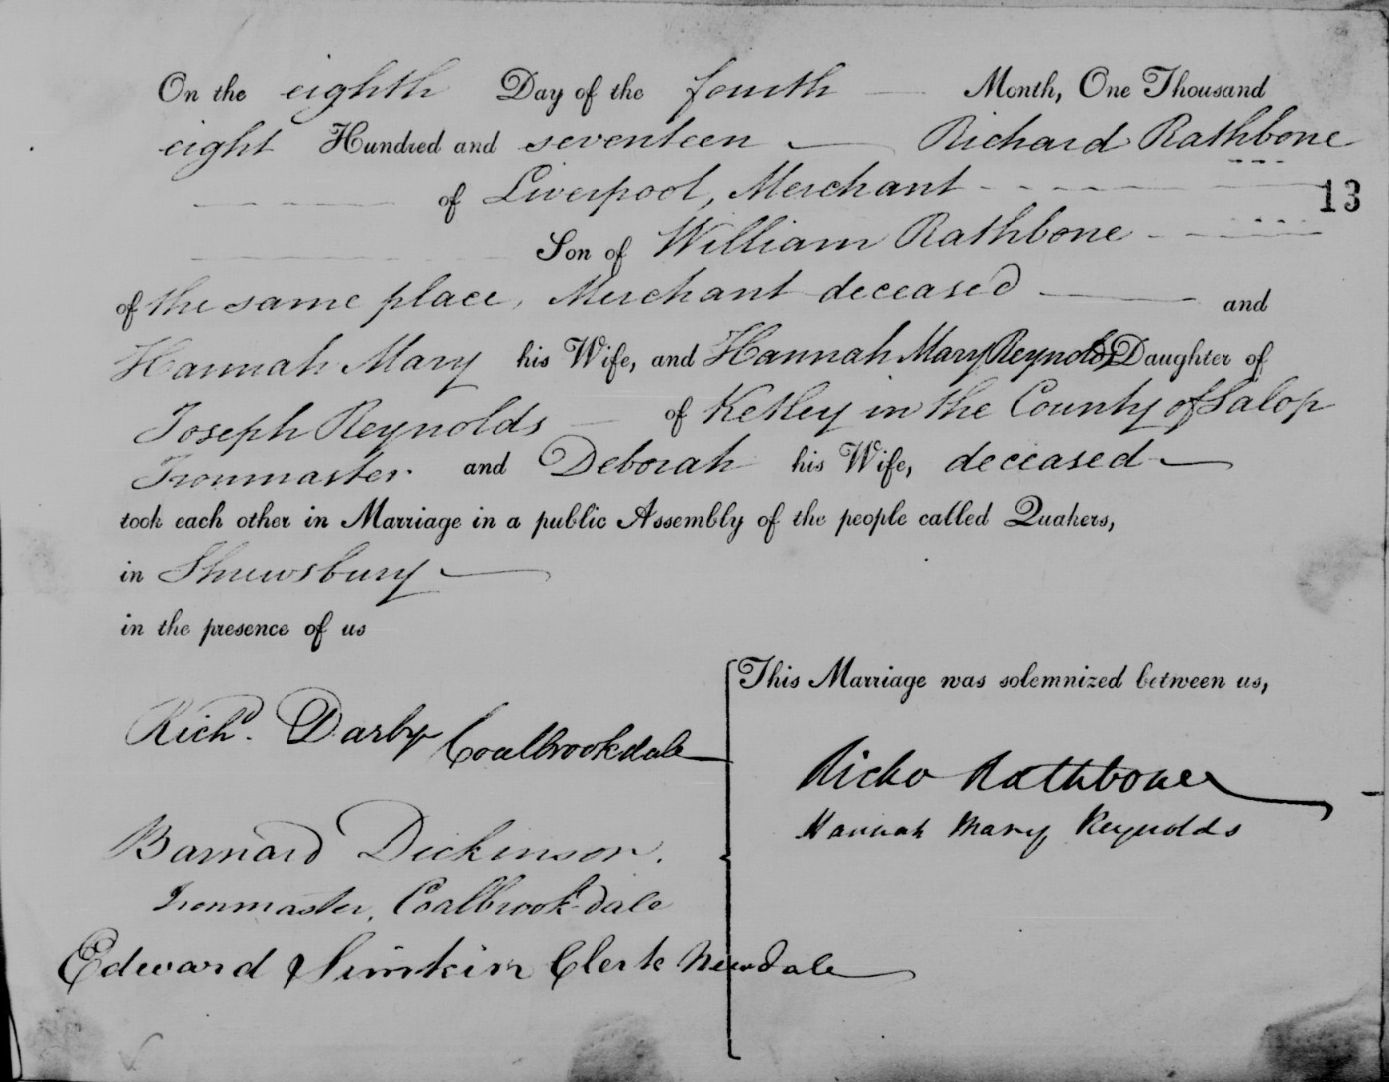 On the eighth Day of the fourth — Month, One Thousand
eight Hundred and seventeen — Richard Rathbone
of Liverpool, Merchant
13
Son of William Rathbone
of the same place, Merchant deceased — and
Hannah Mary his Wife, and Hannah Mary Reynolds Daughter of
Joseph Reynolds — of Ketley in the County of Salop
Ironmaster and Deborah his Wife, deceased —
took each other in Marriage in a public Assembly of the people called Quakers,
in Shrewsbury —
in the presence of us
This Marriage was solemnized between us,
Richd. Darby Coalbrookdale
Richd Rathbone
Hannah Mary Reynolds
Barnard Dickinson.
Ironmaster, Coalbrook-dale
Edward Simkin Clerk Newdale